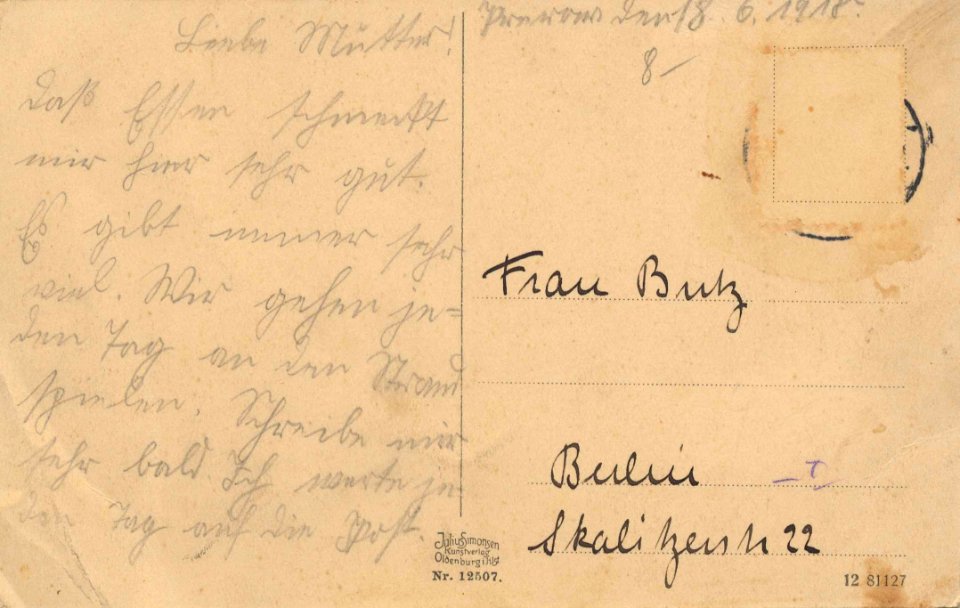 Prerow den 18. 6. 1918.
8-
Liebe Mutter!
Daß Essen schmeckt
mir hier sehr gut.
Es gibt immer sehr
viel. Wir gehen je=
den Tag an den Strand
spielen. Schreibe mir
sehr bald. Ich warte je-
den Tag auf die Post.
Frau Butz
Berlin
Skalitzerstr 22
Julius Simonsen
Kunstverlag
Oldenburg i. Hlst.
Nr. 12507.
12 81127